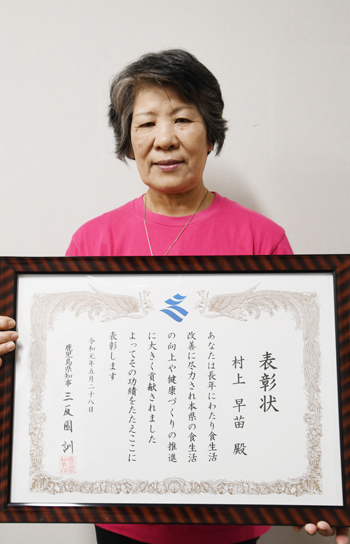 表彰状
村上 早苗 殿
あなたは長年にわたり食生活
改善に尽力され本県の食生活
の向上や健康づくりの推進
に大きく貢献されました
よってその功績をたたえここに
表彰します
令和元年五月二十八日
鹿児島県知事 三反園 訓